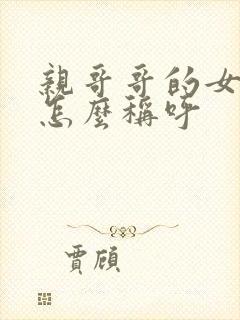 親哥哥的女
怎麼稱呼
賈頎